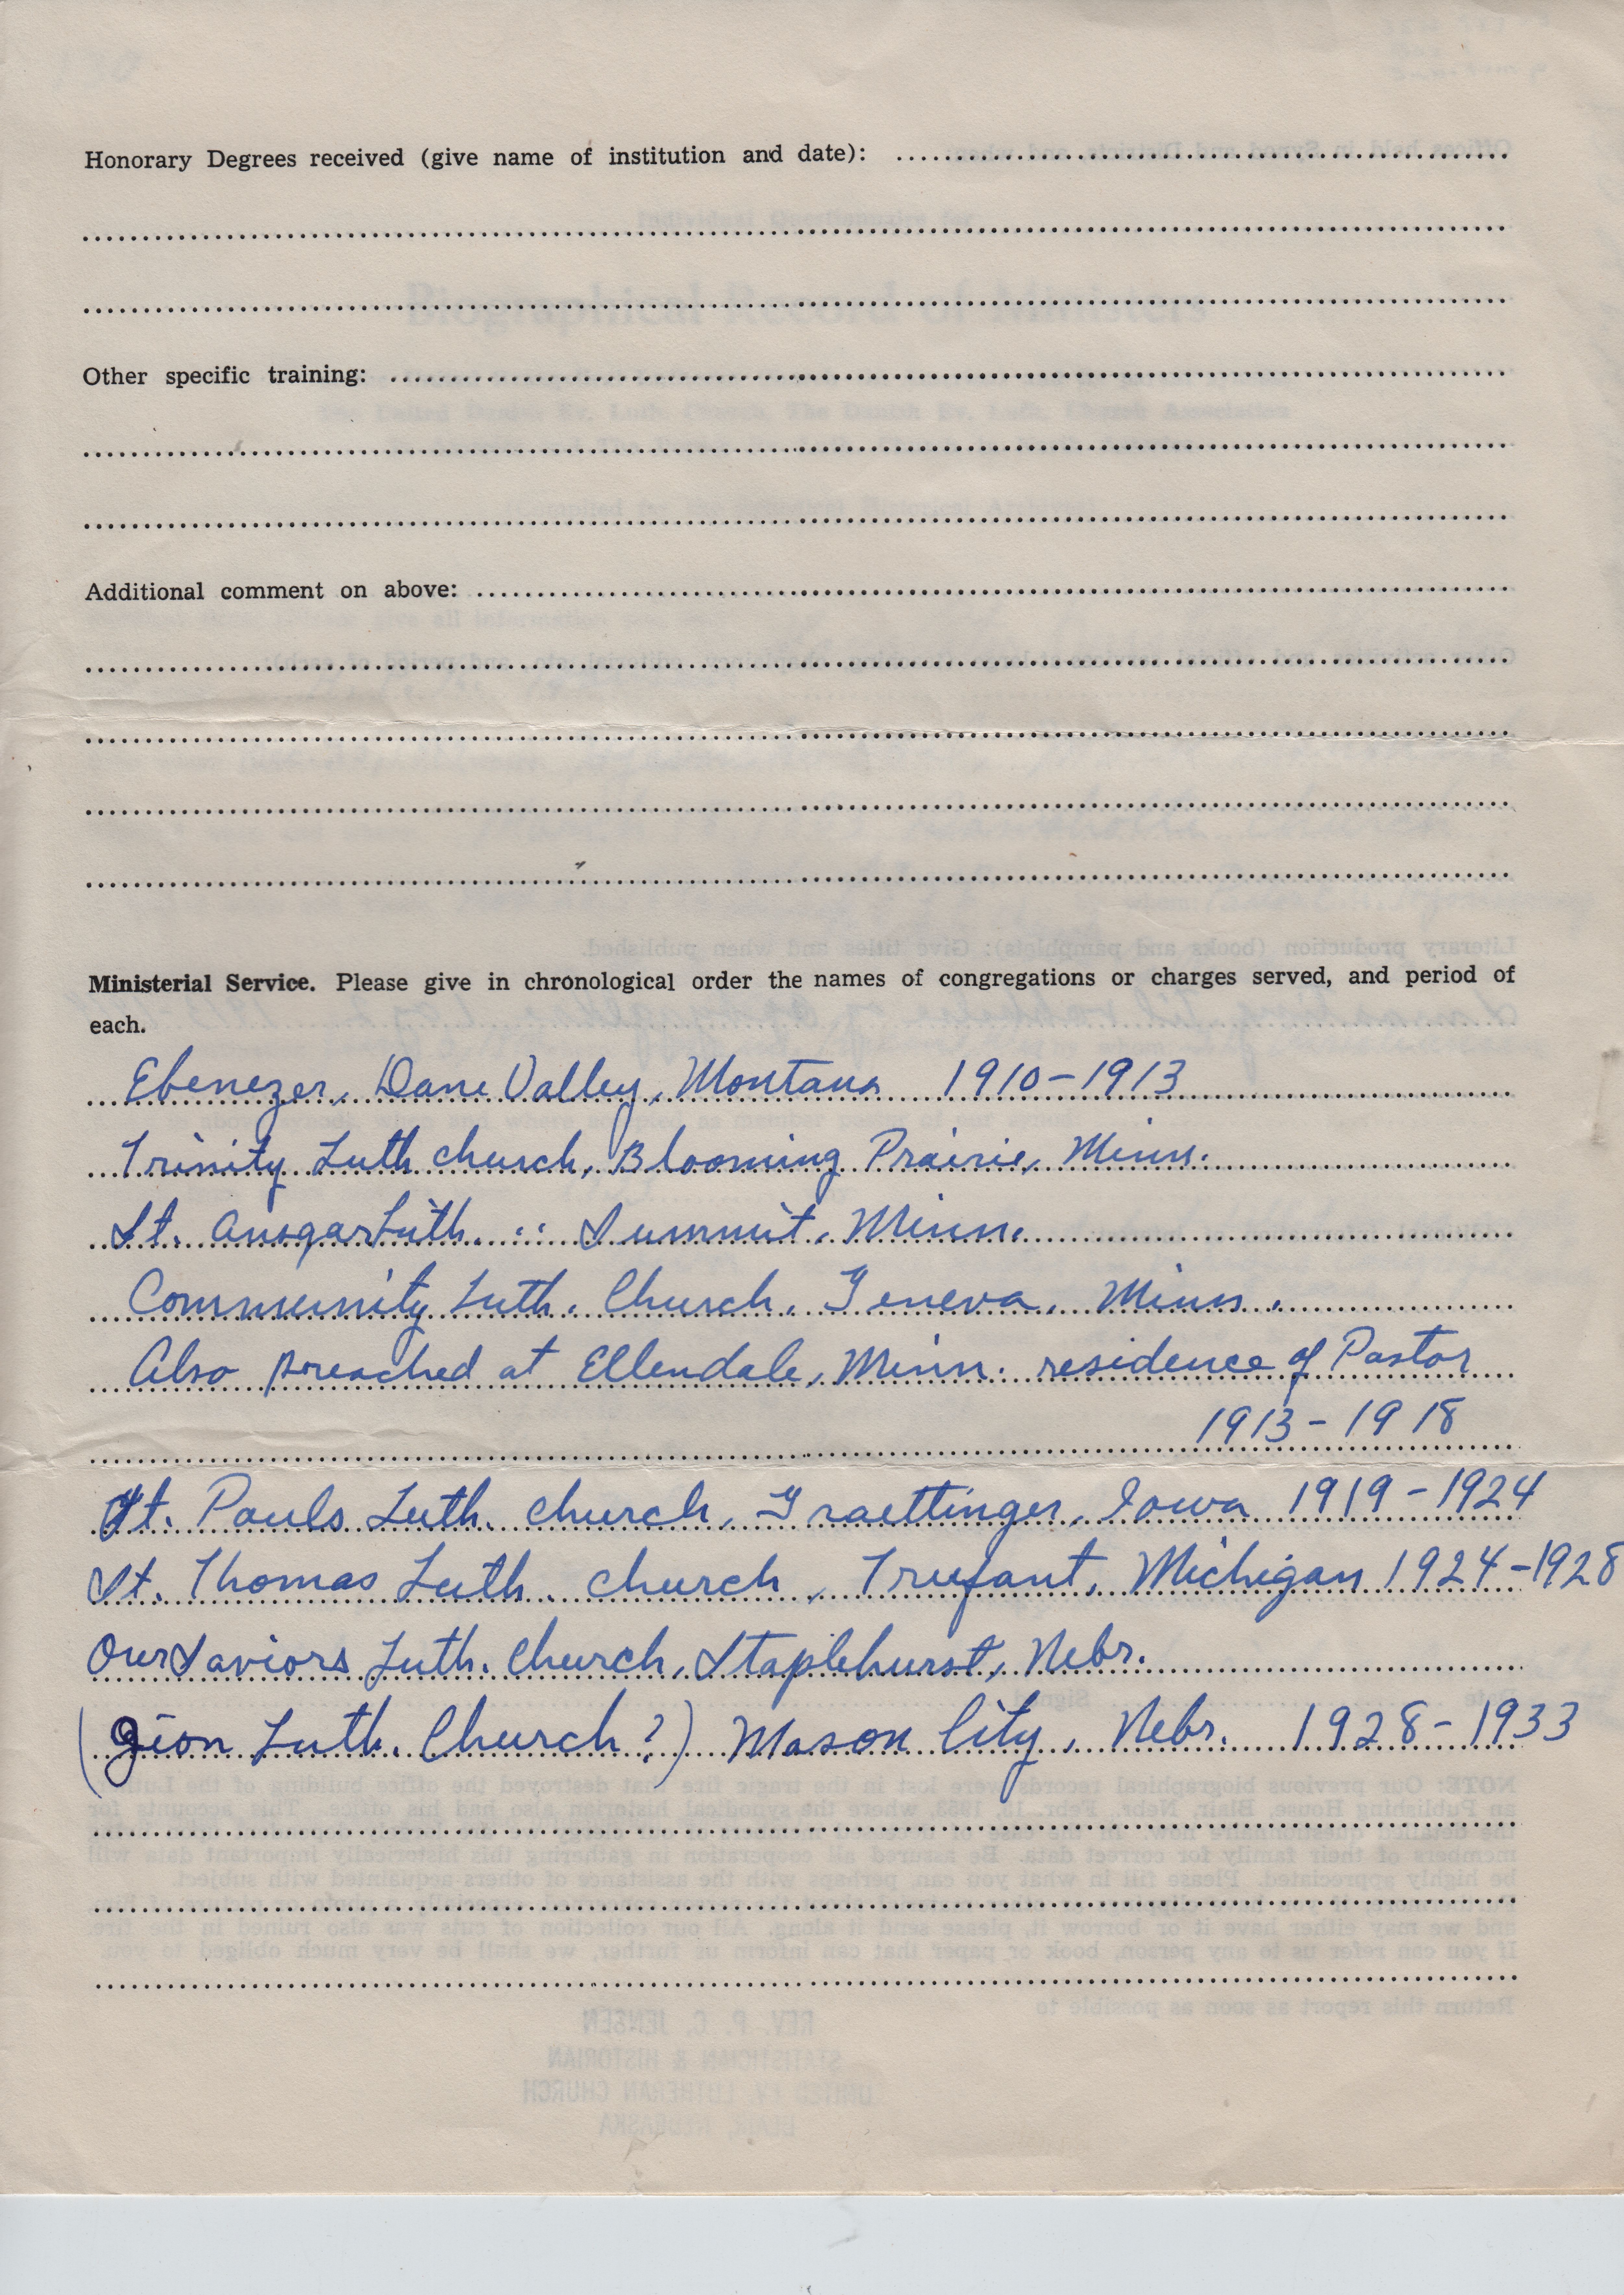 Honorary Degrees received (give name of institution and date):
Other specific training:
Additional comment on above:
Ministerial Service. Please give in chronological order the names of congregations or charges served, and period of
each.
Ebenezer, Dane Valley, Montana 1910-1913
Trinity Luth church, Blooming Prairie, Minn.
St. Ansgar Luth. " Summit, Minn.
Community Luth. Church, Geneva, Minn.
Also preached at Ellendale, Minn. residence of Pastor
1913-1918
St. Pauls Luth. church, Graettinger, Iowa 1919-1924
St. Thomas Luth. church, Trufant, Michigan 1924-1928
Our Saviors Luth. Church, Staplehurst, Nebr.
(Zion Luth. Church?) Mason City, Nebr. 1928-1933